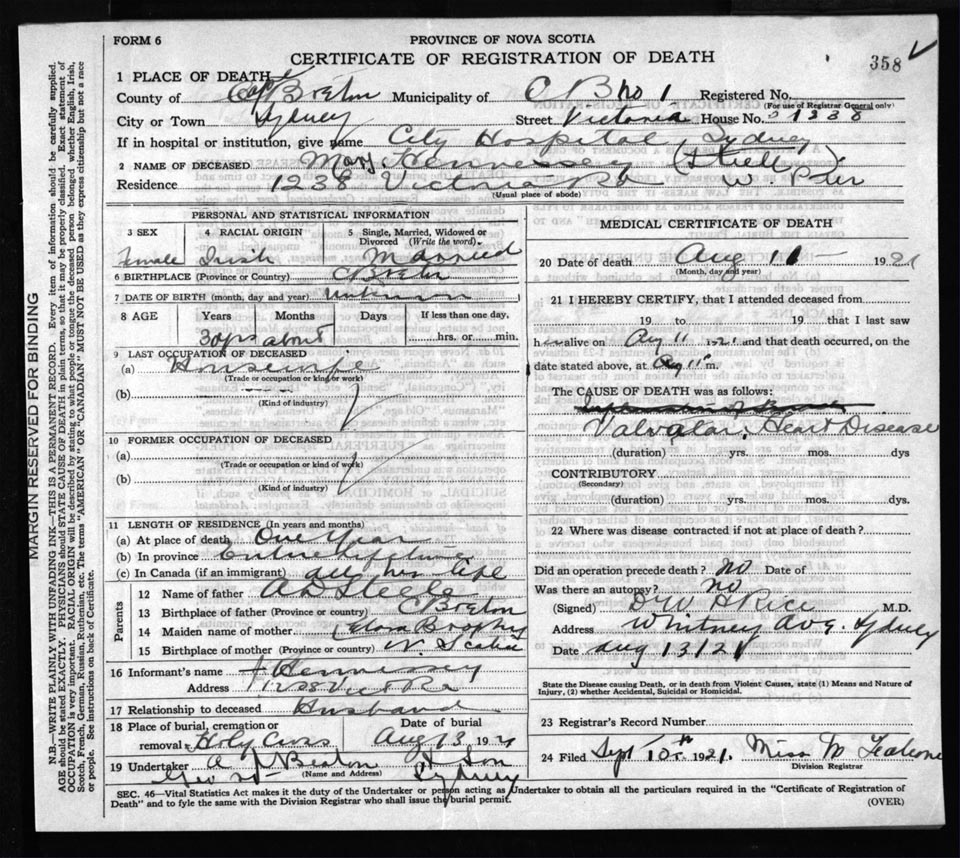 FORM 6
PROVINCE OF NOVA SCOTIA
CERTIFICATE OF REGISTRATION OF DEATH
358
1 PLACE OF DEATH
County of Cape Breton Municipality of C B no 1 Registered No.
(For use of Registrar General only)
City or Town Sydney Street Victoria House No. 1238
If in hospital or institution, give name City Hospital Sydney
2 NAME OF DECEASED Mary Hennessey (Steele)
Residence 1238 Victoria Rd W. Pier
(Usual place of abode)
PERSONAL AND STATISTICAL INFORMATION
3 SEX 4 RACIAL ORIGIN 5 Single, Married, Widowed or Divorced (Write the word)
Female Irish Married
6 BIRTHPLACE (Province or Country) C Breton
7 DATE OF BIRTH (month, day, and year)
8 AGE Years Months Days If less than one day,
30 yrs about hrs. or min.
9 LAST OCCUPATION OF DECEASED
(a) Housewife
(Trade or occupation or kind or work)
(b)
(Kind of industry)
10 FORMER OCCUPATION OF DECEASED
(a)
(Trade or occupation or kind of work)
(b)
(Kind of industry)
11 LENGTH OF RESIDENCE (In years and months)
(a) At place of death One Year
(b) In province Entire lifetime
(c) In Canada (if an immigrant) all her life
Parents
12 Name of father A D Steele
13 Birthplace of father (Province or country) C Breton
14 Maiden name of mother Brophy
15 Birthplace of mother (Province or country) N. Scotia
16 Informant's name J Hennessey
Address 1238 Vict Rd
17 Relationship to deceased Husband
18 Place of burial, cremation or Date of burial
removal Holy Cross Aug 13 1921
19 Undertaker A J Beaton & Son
(Name and Address)
Sydney
MEDICAL CERTIFICATE OF DEATH
20 Date of death Aug 11 1921
(Month, day and year)
21 I HEREBY CERTIFY, that I attended deceased from
19 to 19 that I last saw
h alive on Aug 11 1921 and that death occurred, on the
date stated above, at Aug 11 m.
The CAUSE OF DEATH was as follows:
Valvular Heart Disease
(duration) yrs. mos. dys
CONTRIBUTORY
(Secondary)
(duration) yrs. mos. dys.
22 Where was disease contracted if not at place of death?
Did an operation precede death? no Date of
Was there an autopsy? no
(Signed) D W H Rice M.D.
Address Whitney Ave. Sydney
Date Aug 13/21
State the Disease causing Death, or in death from Violent Causes, state (1) Means and Nature of
Injury, (2) whether Accidental, Suicidal or Homicidal.
23 Registrar's Record Number
24 Filed Sept 10th 1921. Miss M
Division Registrar
SEC. 46—Vital Statistics Act makes it the duty of the Undertaker or person acting as Undertaker to obtain all the particulars required in the "Certificate of Registration of
Death" and to fyle the same with the Division Registrar who shall issue the burial permit.
(OVER)
MARGIN RESERVED FOR BINDING
N.B.—WRITE PLAINLY WITH UNFADING INK—THIS IS A PERMANENT RECORD. Every item of information should be carefully supplied.
AGE should be stated EXACTLY. PHYSICIANS should STATE CAUSE OF DEATH in plain terms, so that it may be properly classified. Exact statement of
OCCUPATION is very important. RACIAL ORIGIN will be described by stating to what people or tongue the deceased person belonged whether English, Irish,
Scotch, French, German, Russian, Ruthenian, etc. The terms "AMERICAN" OR "CANADIAN" MUST NOT BE USED as they express citizenship but not a race
or people. See instructions on back of Certificate.